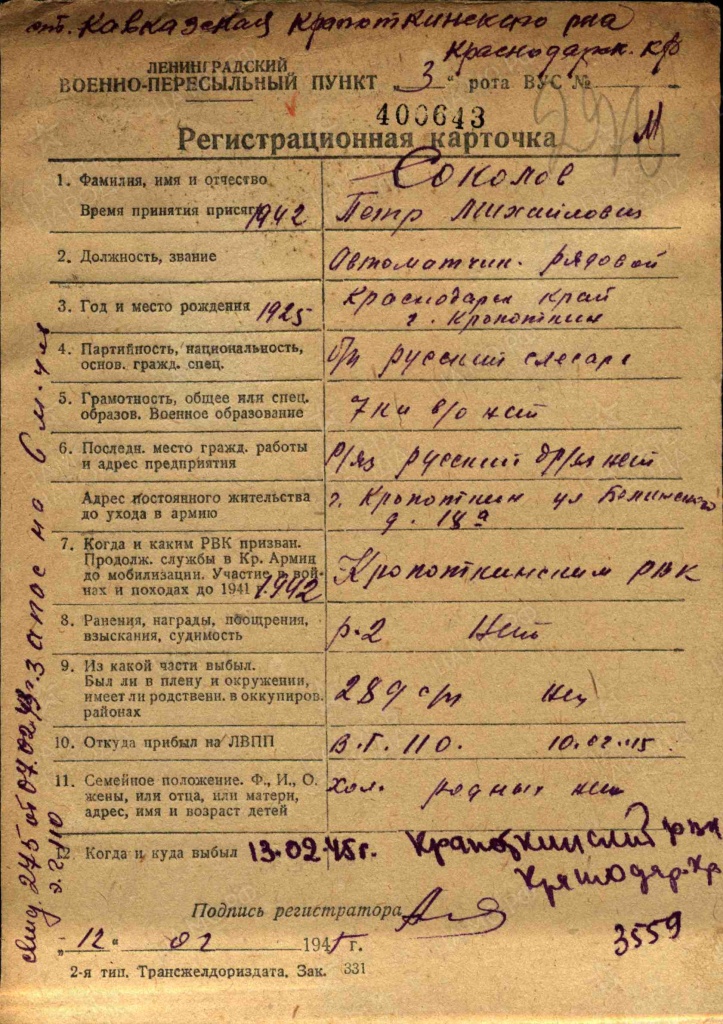 ст. Кавказская Крапоткинского р-на
Краснодарск. кр
ЛЕНИНГРАДСКИЙ
ВОЕННО-ПЕРЕСЫЛЬНЫЙ ПУНКТ „3“ рота ВУС №
400643
Регистрационная карточка М
1. Фамилия, имя и отчество Соколов
Время принятия присяги 1942 Петр Михайлович
2. Должность, звание Автоматчик. рядовой
3. Год и место рождения 1925 Краснодарск край
г. Кропоткин
4. Партийность, национальность,
основ. гражд. спец. б/п русский слесарь
5. Грамотность, общее или спец.
образов. Военное образование 7 кл в/о нет
6. Последн. место гражд. работы
и адрес предприятия Р/яз русский др/яз нет
Адрес постоянного жительства г. Кропоткин ул
до ухода в армию д. 18а
7. Когда и каким РВК призван.
Продолж. службы в Кр. Армии
до мобилизации. Участие в вой-
нах и походах до 1941 1942 Кропоткинским рвк
8. Ранения, награды, поощрения,
взыскания, судимость р-2 нет
9. Из какой части выбыл.
Был ли в плену и окружении,
имеет ли родствени. в оккупиров.
районах 289 сп нет
10. Откуда прибыл на ЛВПП В.Г. 110. 10.02.45
11. Семейное положение. Ф., И., О.
жены, или отца, или матери,
адрес, имя и возраст детей хол. родных нет
12 Когда и куда выбыл 13.02.45г. Крапоткинский рвк
Краснодар. кр
Подпись регистратора
„12“ 02 1945 г.
3559
2-я тип. Трансжелдориздата. Зак. 331
275 от 07.02.45г. запас на 6 м-ц
э.г. 110